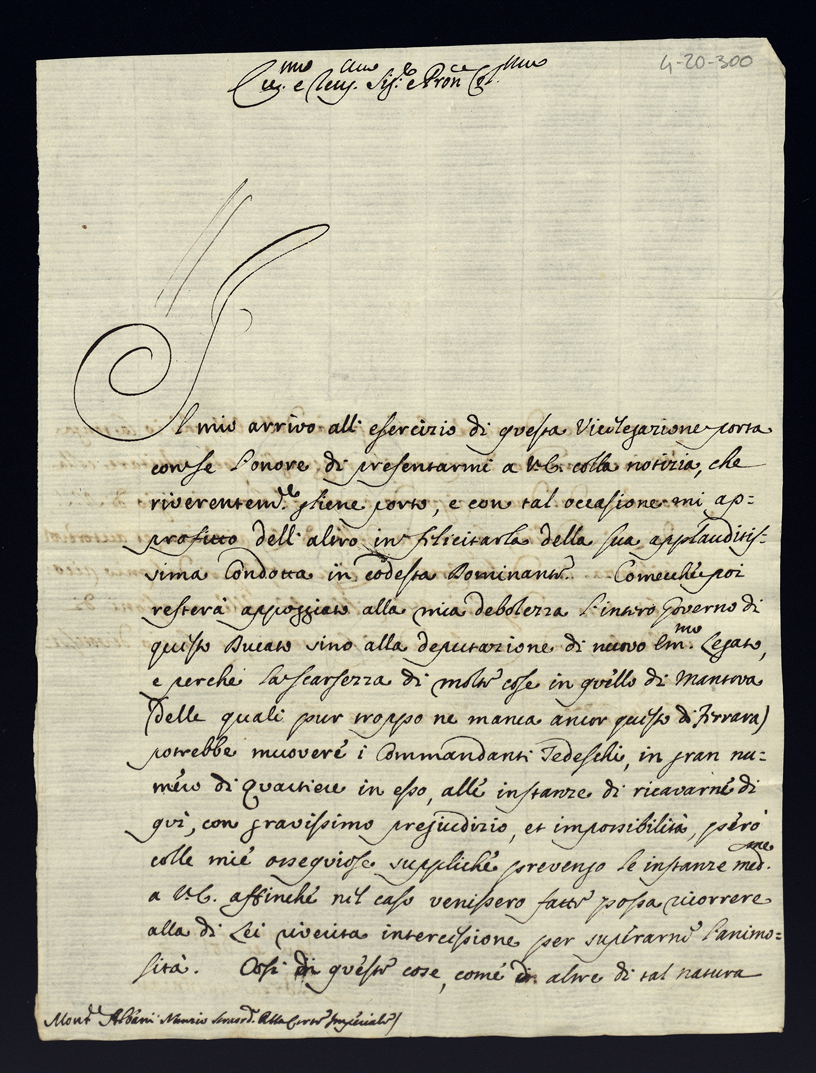 4-20-300
Ill.mo e Rev.mo Sig.re e Pron Col.mo
Il mio arrivo all'esercizio di questa Vicelegazione porta
con se l'onore di presentarmi a V.E. colla notizia, che
riverentem.te gliene porto, e con tal occasione mi ap=
profitto dell'altro in felicitarla della sua applauditis=
sima Condotta in codesta Dominante. Comecche poi
resterà appoggiato alla mia debolezza l'intero Governo di
questo Ducato sino alla deputazione di nuovo Em.mo Legato,
e perche la scarsezza di molte cose in quello di Mantova
(delle quali pur troppo ne manca ancor questo di Ferrara)
potrebbe muovere i Commandanti Tedeschi, in gran nu=
mero di Quartiere in esso, alle instanze di ricavarne di
qui, con gravissimo prejudizio, et impossibilità, però
colle mie ossequiose suppliche prevengo le instanze med.me
a V.E. affinche nel caso venissero fatte possa ricorrere
alla di Lei riverita intercessione per superarne l'animo=
sità. Così di queste cose, come di altre di tal natura
Mons.r Albani Nunzio straord. alla Corte Imperiale)